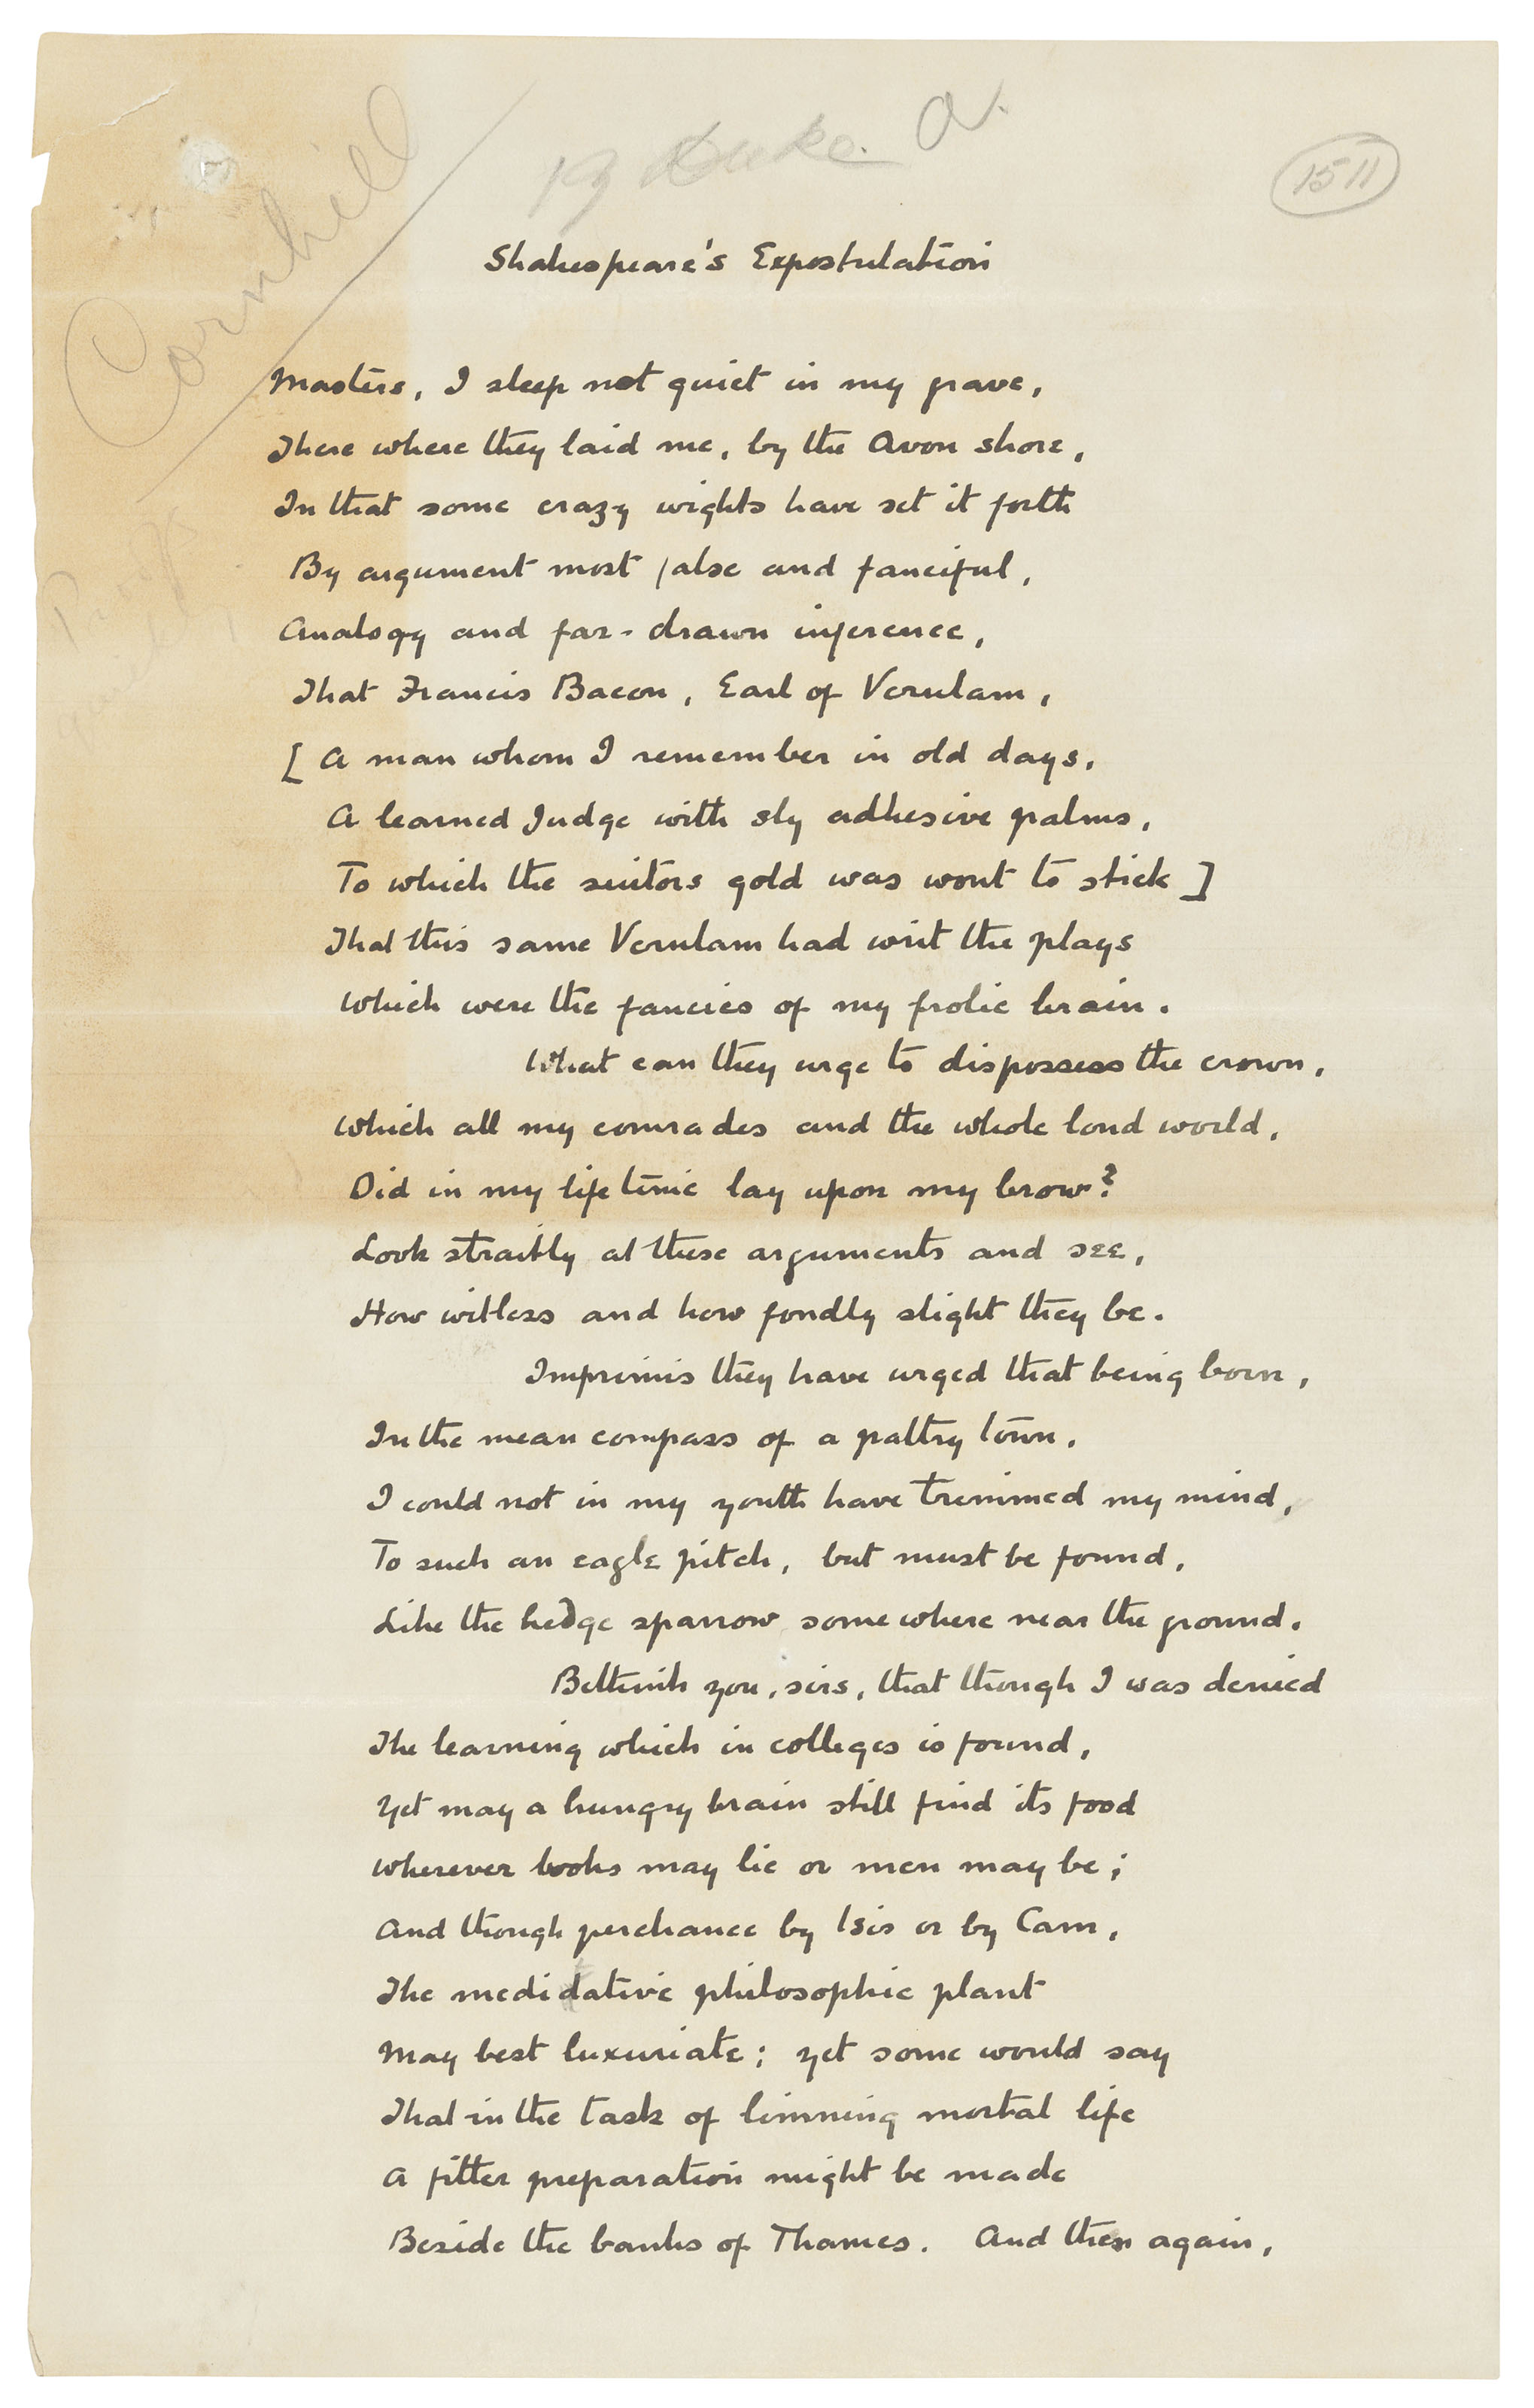 Cornhill
1511
Shakespeare's Expostulation
Masters, I sleep not quiet in my grave,
There where they laid me, by the Avon shore,
In that some crazy wights have set it forth
By argument most false and fanciful,
Analogy and far-drawn inference,
That Francis Bacon, Earl of Verulam,
[A man whom I remember in old days,
A learned Judge with sly adhesive palms,
To which the suitors gold was wont to stick]
That this same Verulam had writ the plays
Which were the fancies of my frolic brain.
What can they urge to dispossess the crown,
Which all my comrades and the whole loud world,
Did in my lifetime lay upon my brow?
Look straitly at these arguments and see,
How witless and how fondly slight they be.
Imprimis they have urged that being born,
In the mean compass of a paltry town,
I could not in my youth have trimmed my mind,
To such an eagle pitch, but must be found,
Like the hedge sparrow somewhere near the ground.
Bethink you, sirs, that though I was denied
The learning which in colleges is found,
Yet may a hungry brain still find its food
Wherever books may lie or men may be;
And though perchance by Isis or by Cam,
The meditative philosophic plant
May best luxuriate; yet some would say
That in the task of limning mortal life
A fitter preparation might be made
Beside the banks of Thames. And then again,